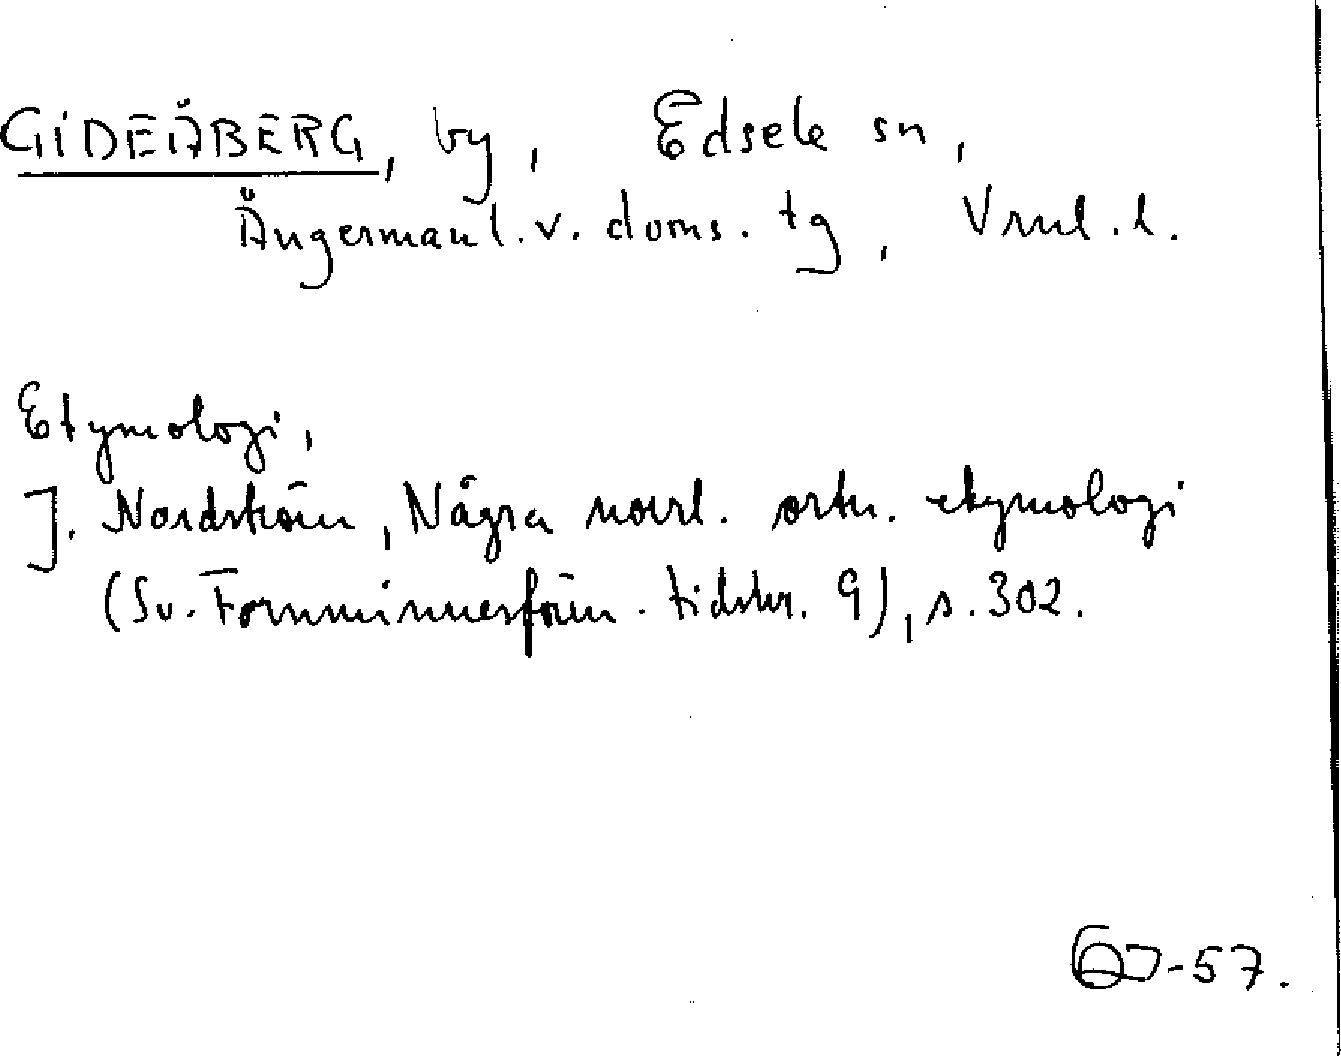 GIDEÅBERG, by, Edsele sn,
Ångermanl. v. doms. tg, Vrnl. l.
Etymologi,
J. Nordström, Några norrl. ortn. etymologi
(Sv. Fornminnesfören. tidskr. 9), s. 302.
-57.